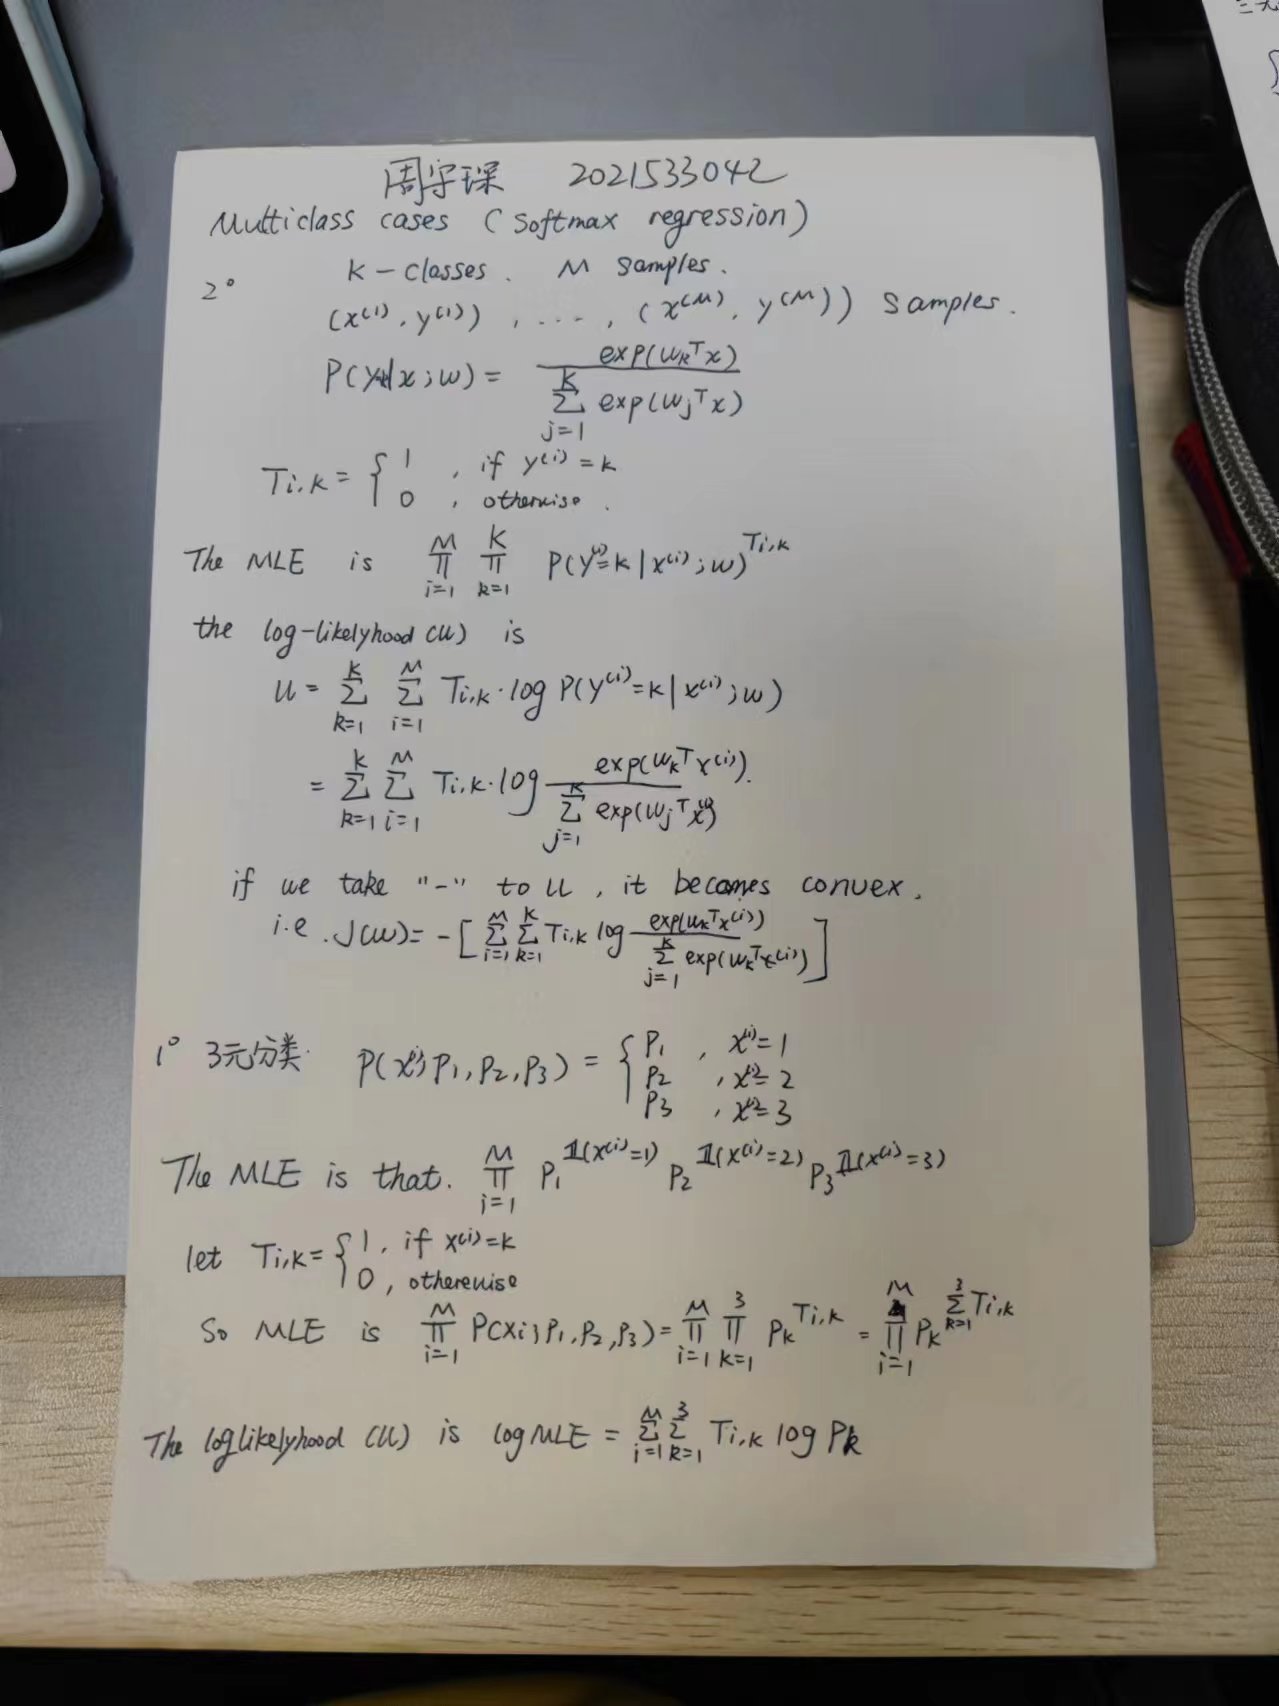 周守琛 2021533042
Multiclass cases (Softmax regression)
2° K-classes. M samples.
(x⁽¹⁾, y⁽¹⁾), ..., (x⁽ᴹ⁾, y⁽ᴹ⁾)) samples.
P(y=k|x;w) = exp(wₖᵀx) / Σ_{j=1}^{K} exp(wⱼᵀx)
Ti,k = { 1 , if y⁽ⁱ⁾ = k
0 , otherwise.
The MLE is Π_{i=1}^{M} Π_{k=1}^{K} P(y⁽ⁱ⁾=k | x⁽ⁱ⁾;w)^{Ti,k}
the log-likelyhood (ll) is
ll = Σ_{k=1}^{K} Σ_{i=1}^{M} Ti,k · log P(y⁽ⁱ⁾=k | x⁽ⁱ⁾;w)
= Σ_{k=1}^{K} Σ_{i=1}^{M} Ti,k · log exp(wₖᵀx⁽ⁱ⁾) / Σ_{j=1}^{K} exp(wⱼᵀx⁽ⁱ⁾)
if we take "-" to ll, it becomes convex.
i.e. J(w) = -[Σ_{i=1}^{M} Σ_{k=1}^{K} Ti,k log exp(wₖᵀx⁽ⁱ⁾) / Σ_{j=1}^{K} exp(wₖᵀx⁽ⁱ⁾)]
1° 3元分类. P(x⁽ⁱ⁾; P₁, P₂, P₃) = { P₁ , x⁽ⁱ⁾=1
P₂ , x⁽ⁱ⁾=2
P₃ , x⁽ⁱ⁾=3
The MLE is that. Π_{i=1}^{M} P₁^{𝟙(x⁽ⁱ⁾=1)} P₂^{𝟙(x⁽ⁱ⁾=2)} P₃^{𝟙(x⁽ⁱ⁾=3)}
let Ti,k = { 1, if x⁽ⁱ⁾=k
0, otherewise
So MLE is Π_{i=1}^{M} P(xi; P₁, P₂, P₃) = Π_{i=1}^{M} Π_{k=1}^{3} Pₖ^{Ti,k} = Π_{i=1}^{M} Pₖ^{Σ_{k=1}^{3} Ti,k}
The loglikelyhood (ll) is log MLE = Σ_{i=1}^{M} Σ_{k=1}^{3} Ti,k log Pₖ